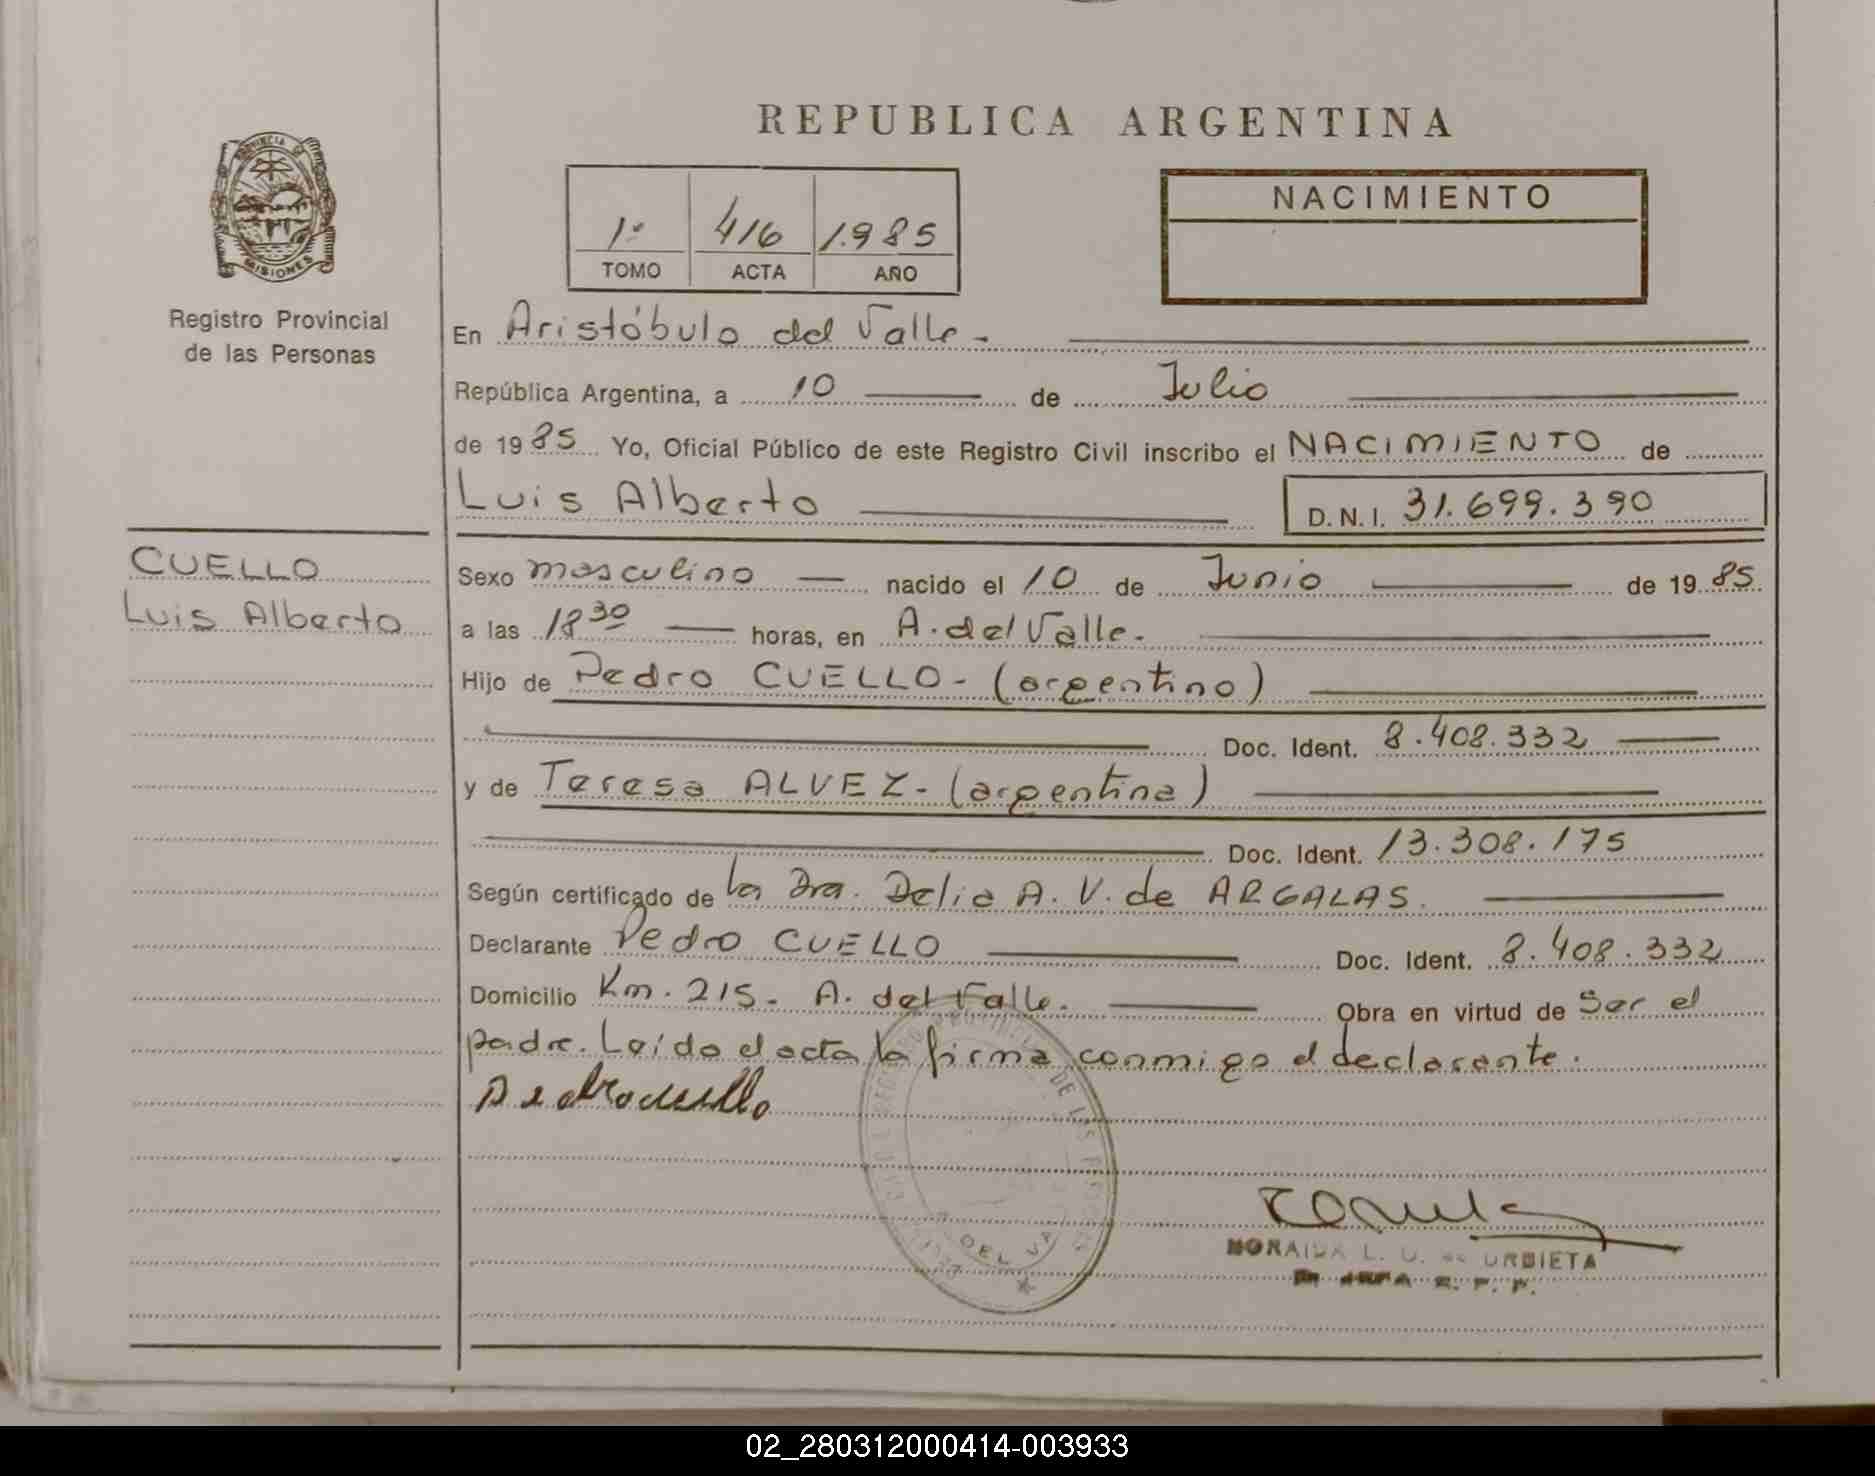 REPUBLICA ARGENTINA
PROVINCIA DE
MISIONES
Registro Provincial
de las Personas
1º 416 1.985
TOMO ACTA AÑO
NACIMIENTO
En Aristóbulo del Valle.-
República Argentina, a 10 de Julio
de 1985 Yo, Oficial Público de este Registro Civil inscribo el NACIMIENTO de
Luis Alberto D.N.I. 31.699.390
CUELLO
Luis Alberto
Sexo masculino nacido el 10 de Junio de 1985.
a las 18 30 horas, en A. del Valle.
Hijo de Pedro CUELLO- (argentino)
Doc. Ident. 8.408.332
y de Teresa ALVEZ.- (argentina)
Doc. Ident. 13.308.175
Según certificado de la Dra. Delia A. V. de ARGALAS.
Declarante Pedro CUELLO Doc. Ident. 8.408.332
Domicilio Km. 215. A. del Valle. Obra en virtud de Ser el
padre. Leído el acta la firma conmigo el declarante.
Pedro cuello
DEL VA
L. U. de URBIETA
02_280312000414-003933